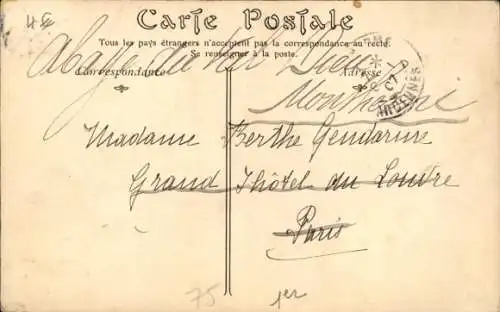 Carte Postale
Tous les pays étrangers n'acceptent pas la correspondance au recto.
Se renseigner à la poste.
Correspondance
Adresse
Madame Berthe Gendarme
Grand Hôtel du Louvre
Paris
75
1er